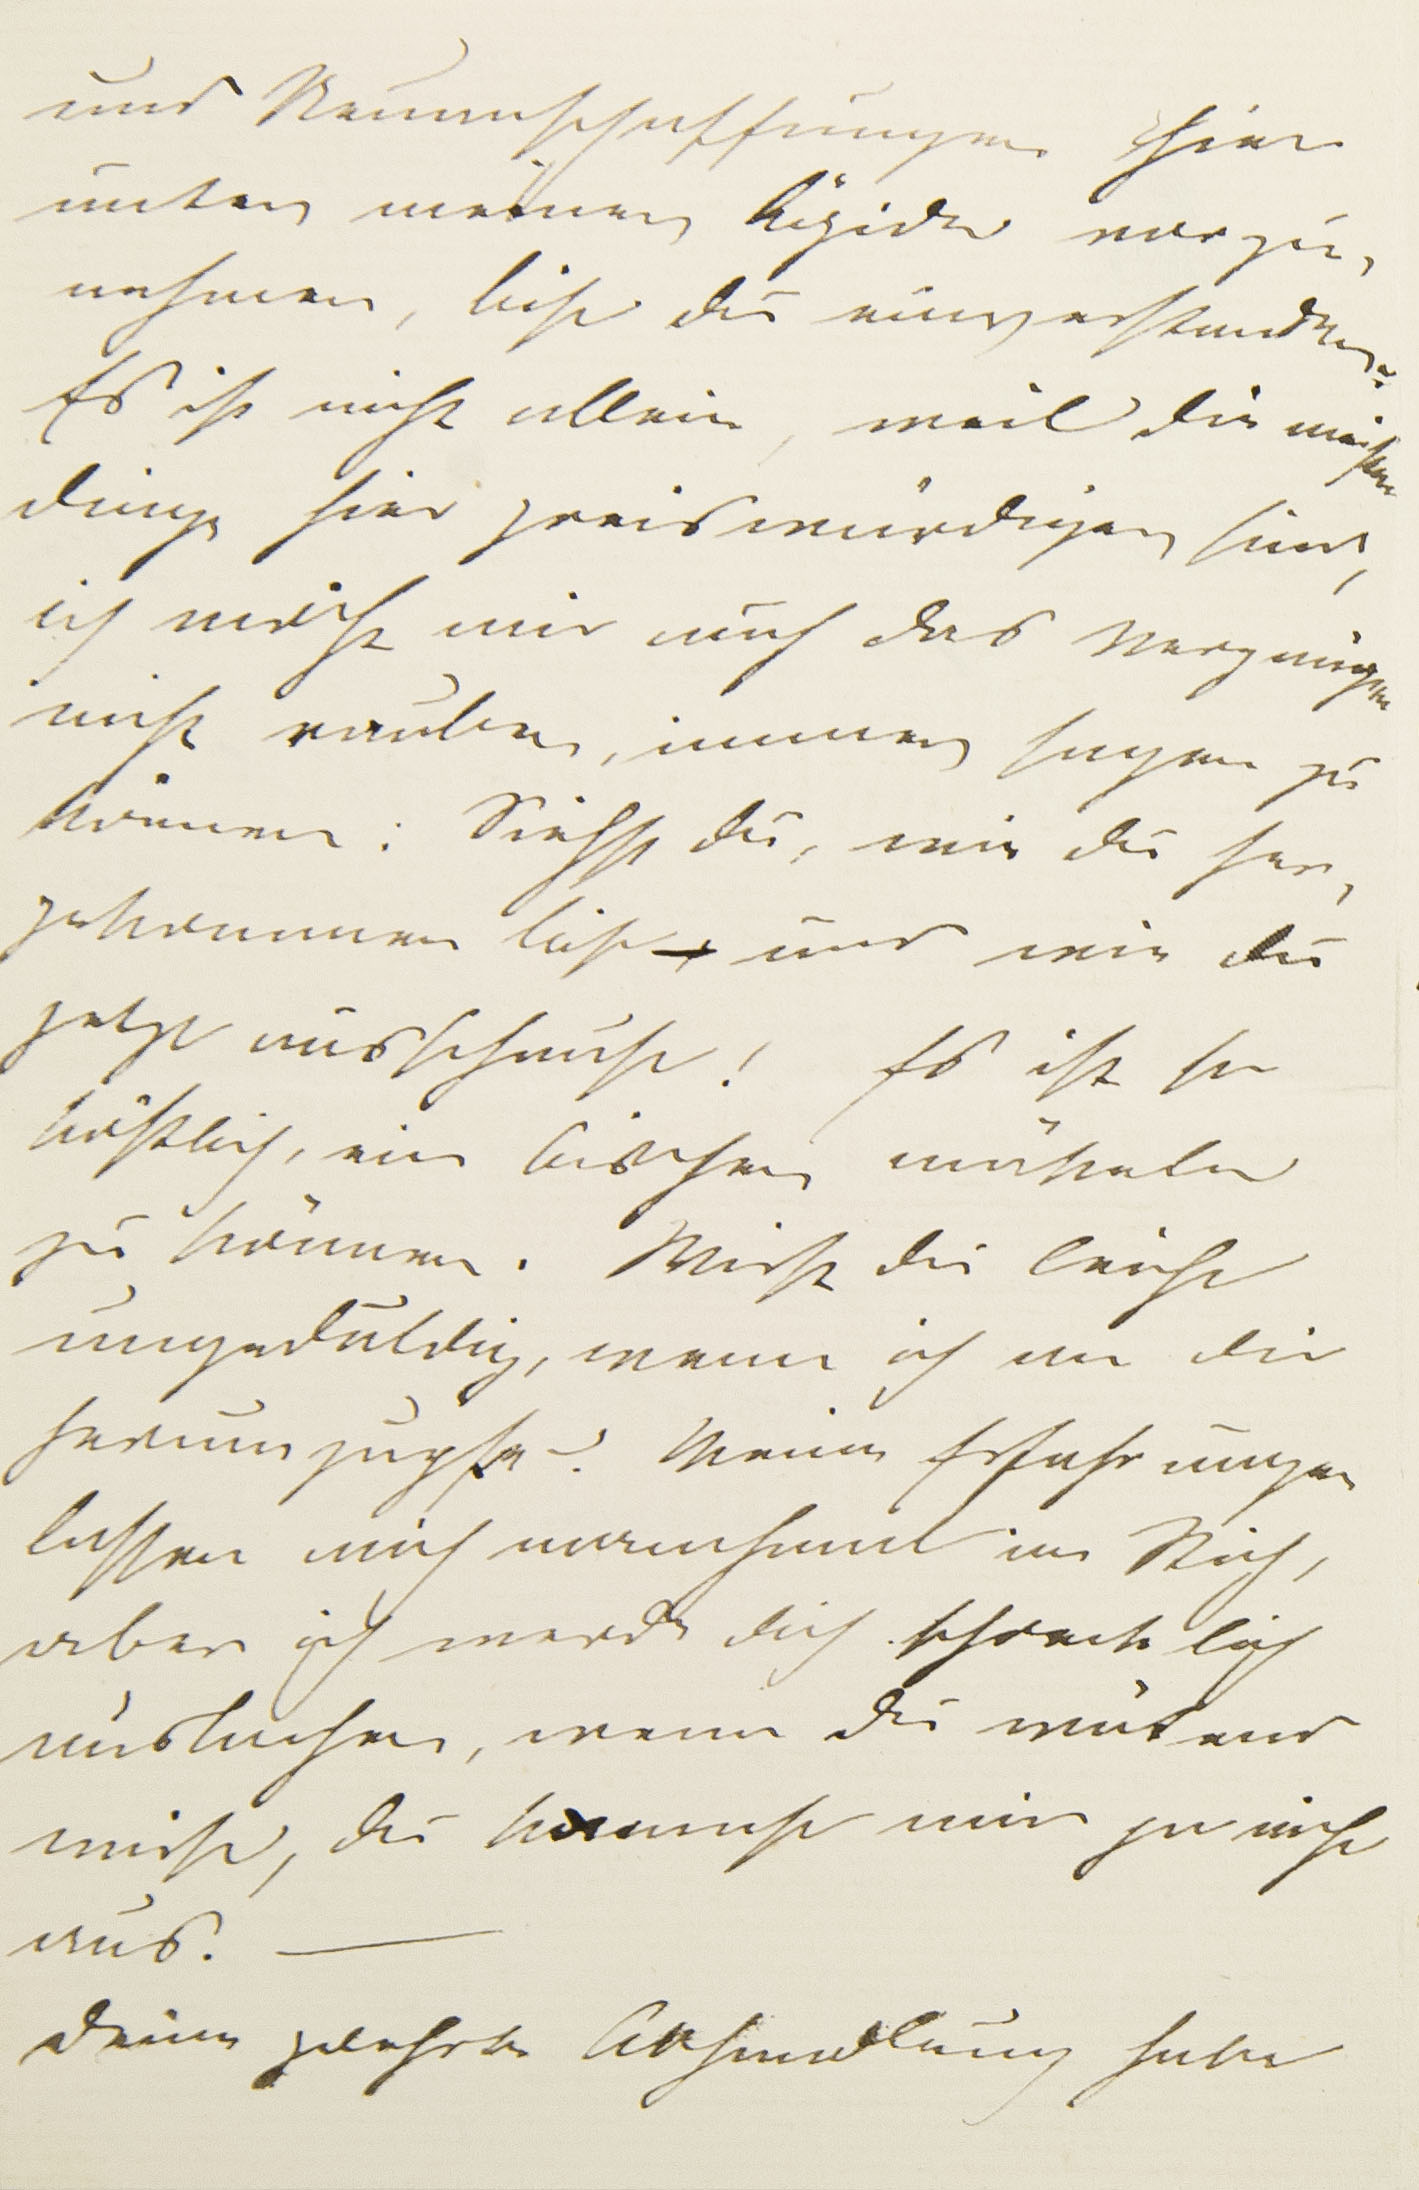 und Neuanschaffungen hier
unter meiner Ägide vorzu-
nehmen, bist du einverstanden?
Es ist nicht allein, weil die meisten
Dinge hier preiswürdiger sind,
ich möcht mir auch das Vergnügen
nicht rauben, immer sagen zu
können: Siehst du, wie du her-
gekommen bist und wie du
jetzt ausschaust! Es ist so
köstlich, ein bischen mäkeln
zu können. Wirst du leicht
ungeduldig, wenn ich an dir
herumzupfe? Meine Erfahrungen
lassen mich manchmal im Stich,
aber ich werde dich schrecklich
auslachen, wenn du wütend
wirst, du kommst mir ja nicht
aus. —
Deine gelehrte Abhandlung habe